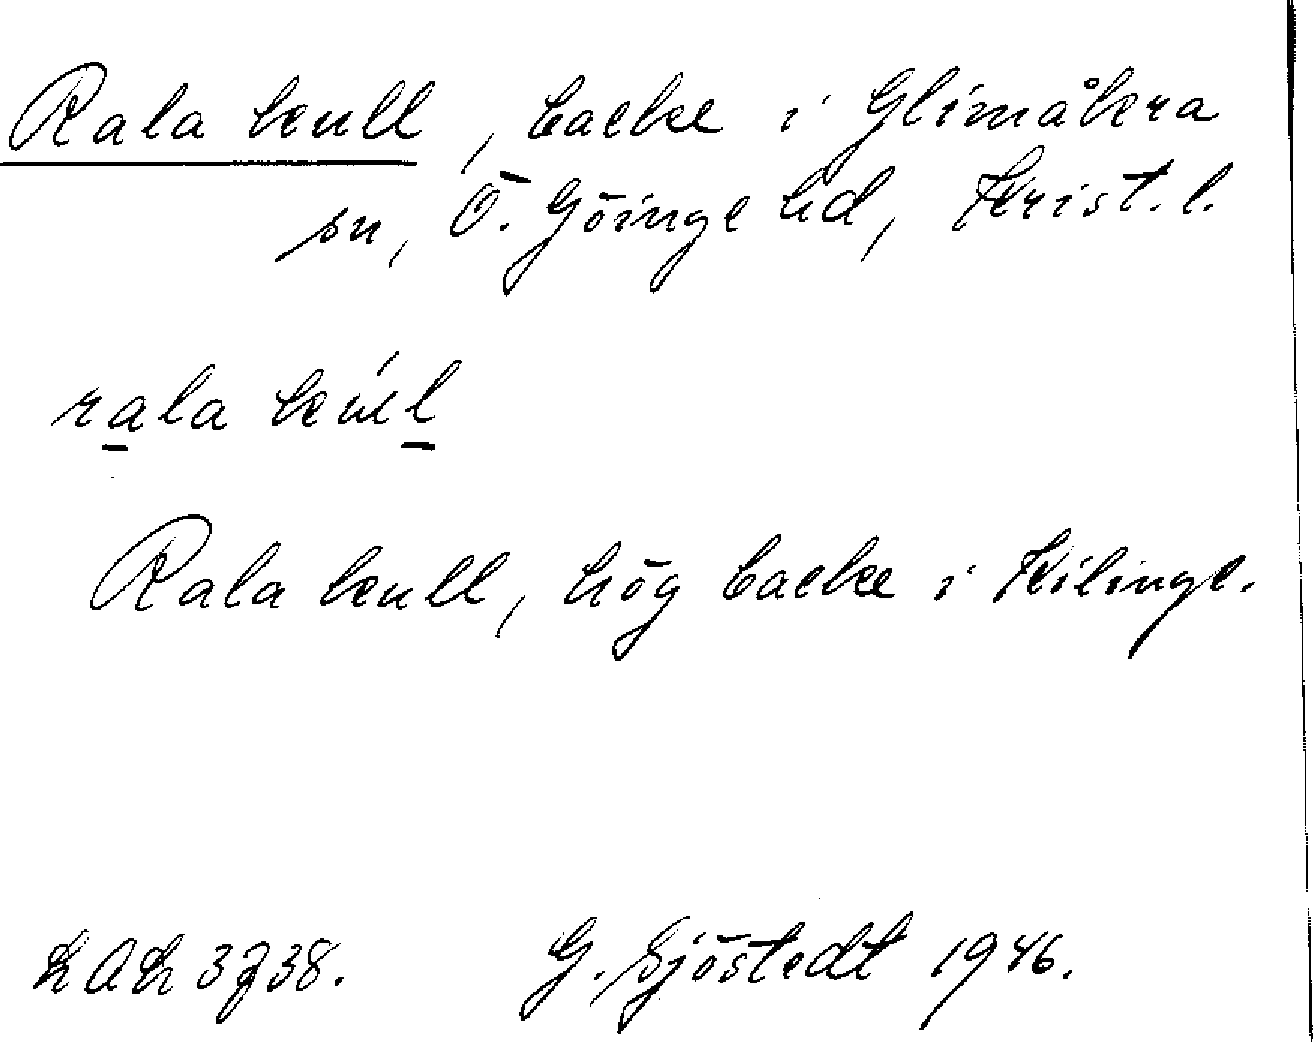 Rala kull, backe i Glimåkra
sn, Ö. Göinge hd, Krist. l.
rala kúl
Rala kull, hög backe i Kilinge.
LAL 3738.
G. Sjöstedt 1946.